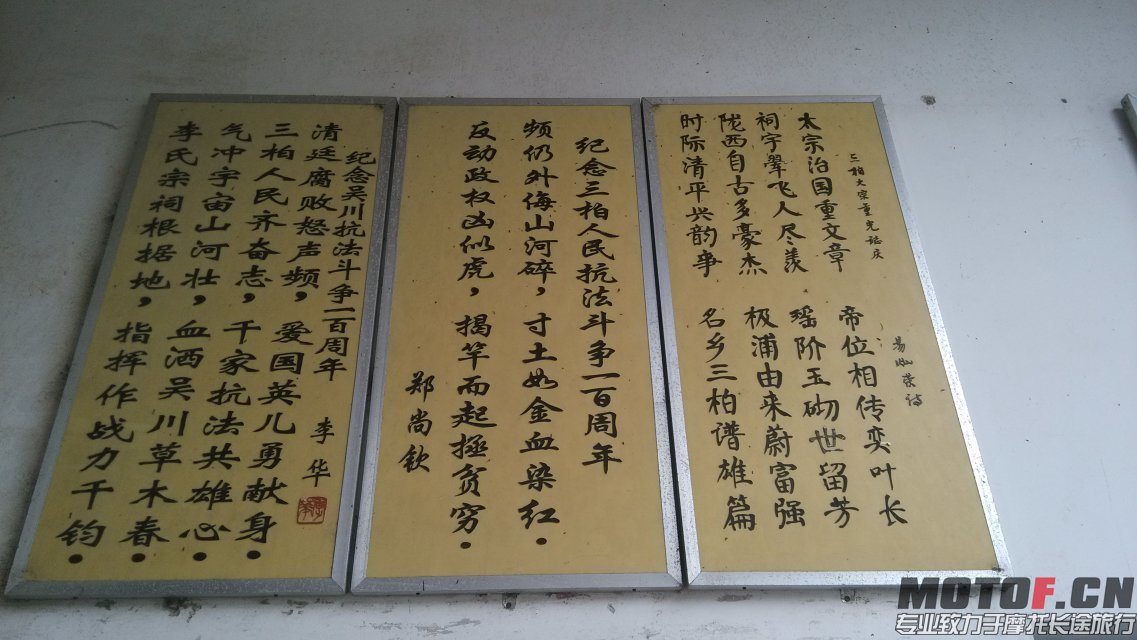 三柏大宗重光誌庆
太宗治国重文章 帝位相传奕叶长
祠宇翚飞人尽羡 瑶阶玉砌世留芳
陇西自古多豪杰 极浦由来蔚富强
时际清平兴韵事 名乡三柏谱雄篇
纪念三柏人民抗法斗争一百周年
频仍外侮山河碎，寸土如金血染红.
反动政权凶似虎，揭竿而起拯贫穷.
郑尚钦
纪念吴川抗法斗争一百周年 李华
清廷腐败怒声频，爱国英儿勇献身.
三柏人民齐奋志，千家抗法共雄心.
气冲宇宙山河壮，血洒吴川草木春.
李氏宗祠根据地，指挥作战力千钧.
MOTOF.CN
专业致力于摩托长途旅行